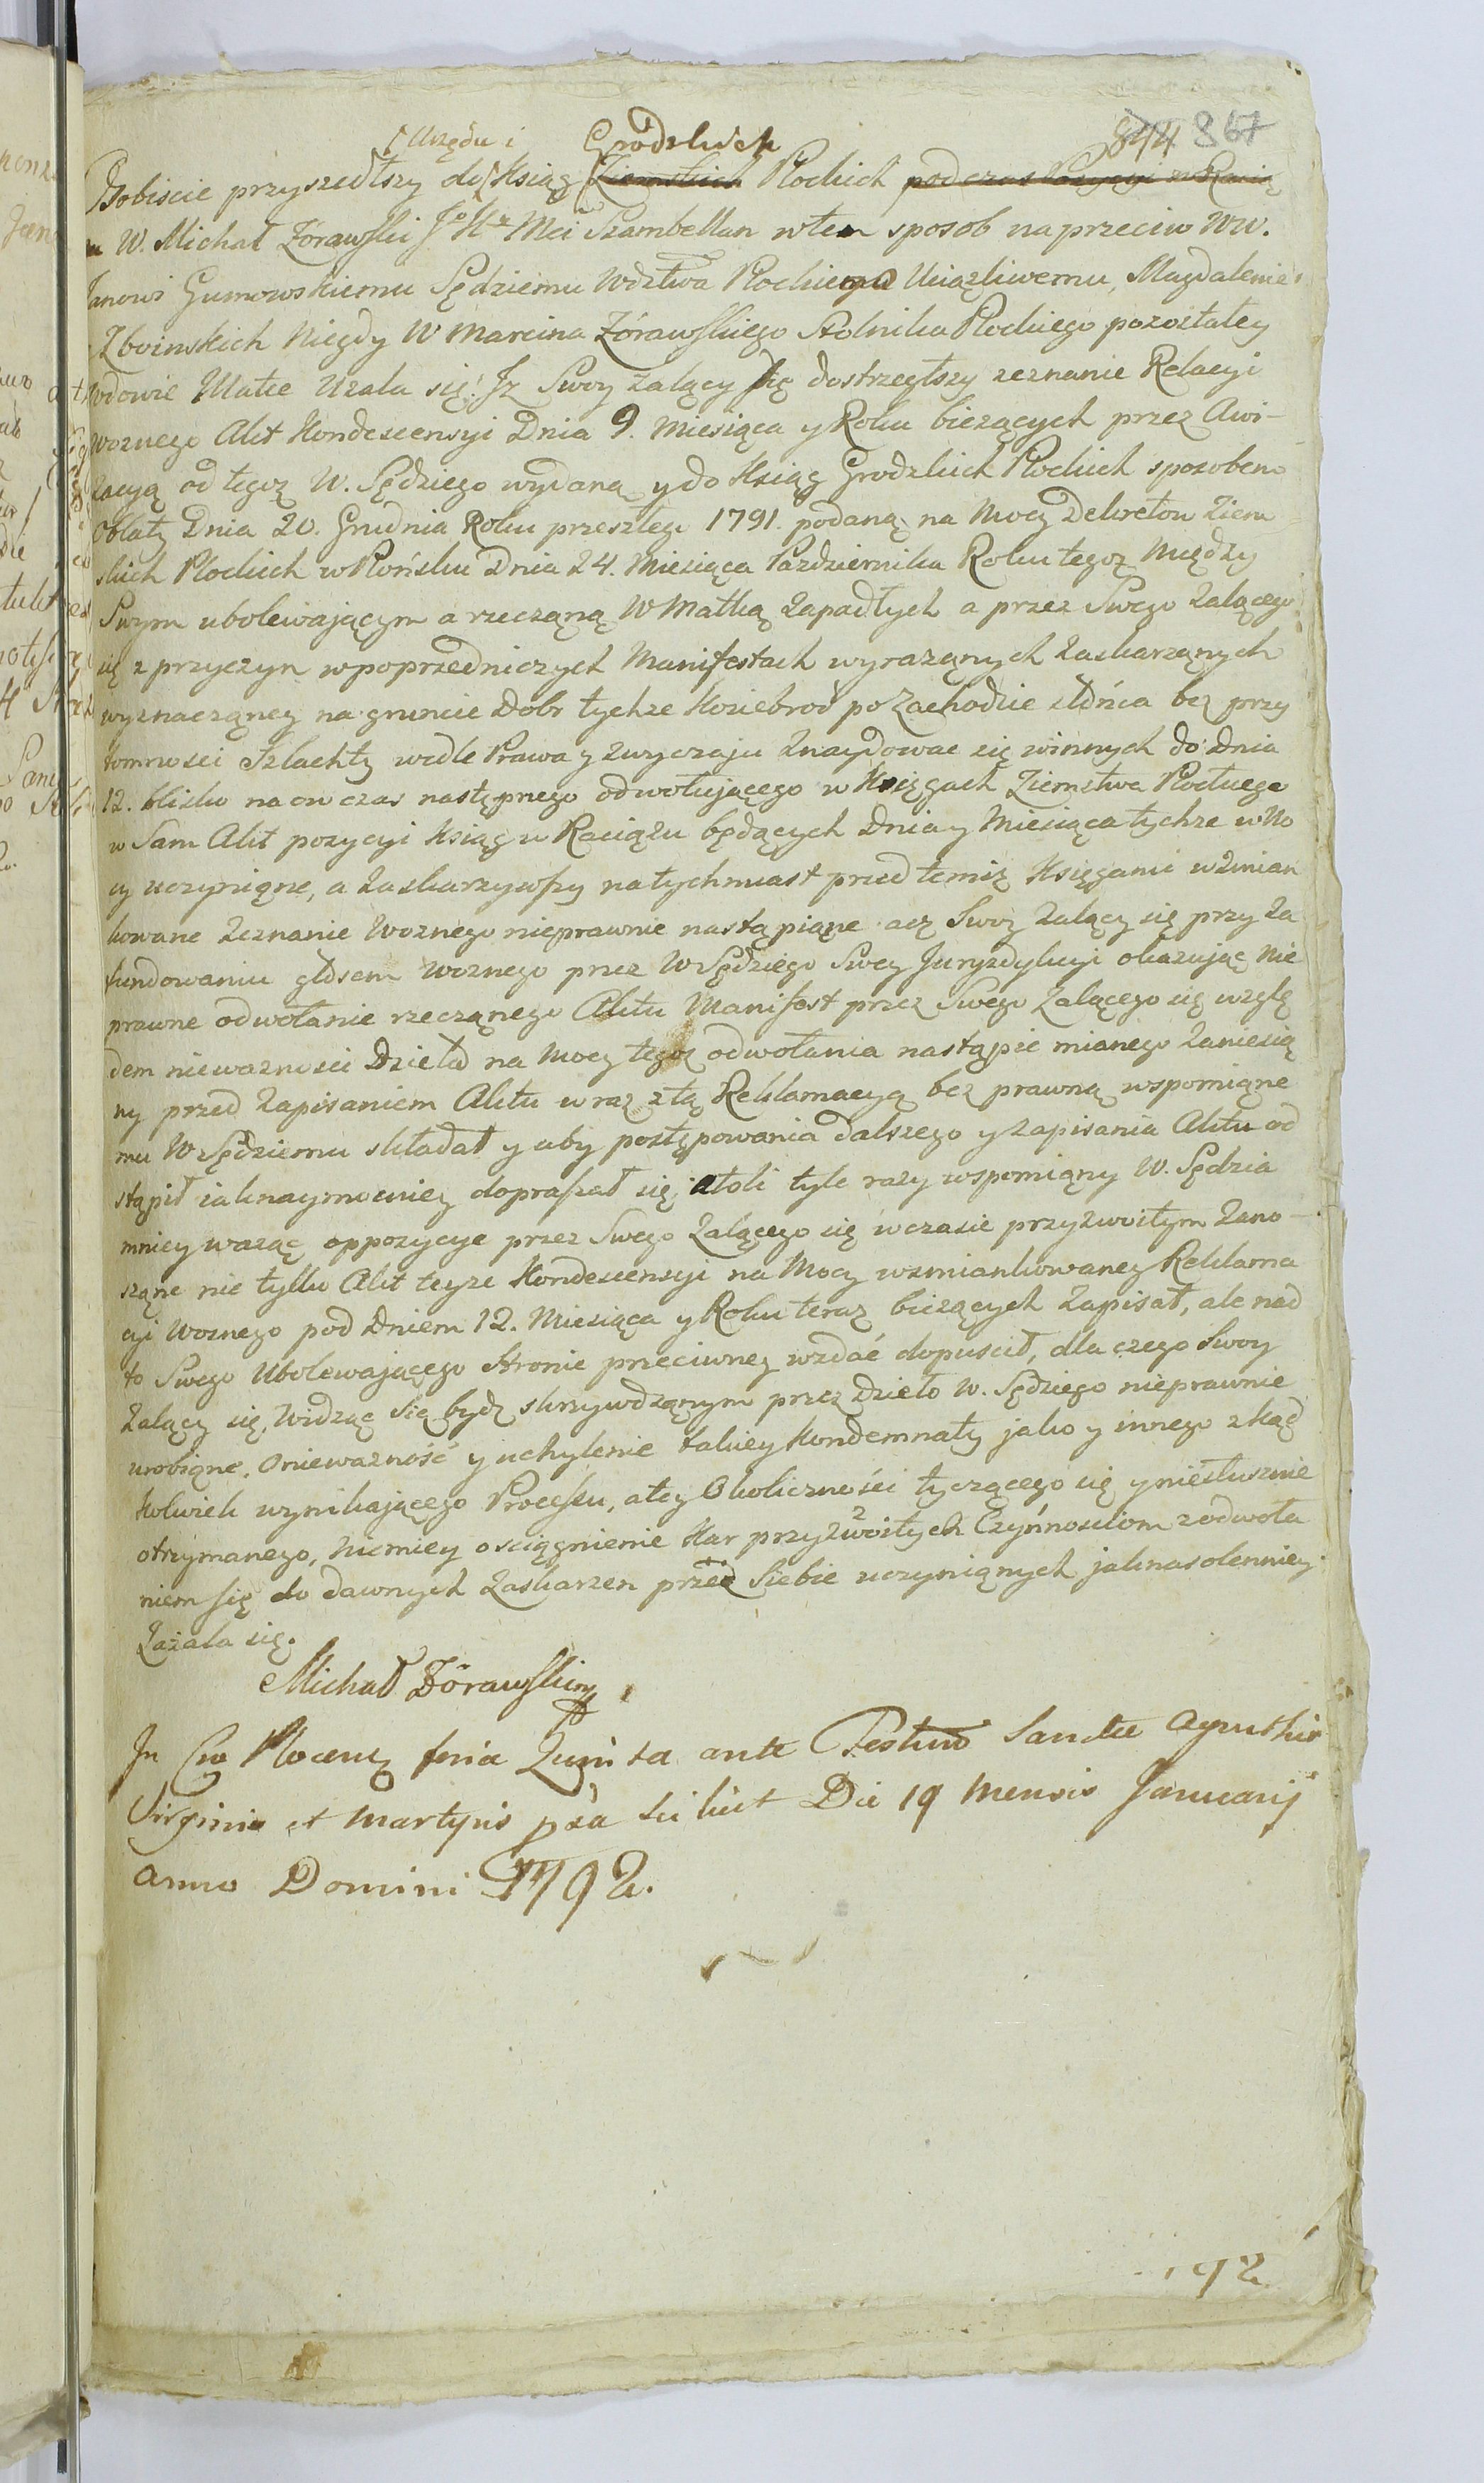 844 867
Urzędu i Grodzkich
Osobiscie przyszedłszy do Ksiąg Ziemskich Płockich podczas Pozycyi w Racią
u W. Michał Zorawski JoKr Mci Szambellan wten sposob naprzeciw WW.
Janowi Gumowskiemu Sędziemu Wdztwa Płockiego Uciązliwemu, Magdalenie
Zboinskich Niegdy W Marcina Zórawskiego Stolnika Płockiego pozostałey
Wdowie Matce Uzala się: Iz Swoy zalący się dostrzegłszy zeznanie Relacyi
Woznego Akt Kondescensyi Dnia 9. Miesiąca y Roku bieżących przez Awi-
zacyą od tegoz W. Sędziego wydaną y do Ksiąg Grodzkich Płockich sposobem
Oblaty Dnia 20. Grudnia Roku przeszłego 1791. podaną na Mocy Dekretow Ziem
skich Płockich w Płońsku Dnia 24. Miesiąca Pazdziernika Roku tegoz Między
Swym ubolewaiącym a rzecząną W Matką zapadłych a przez Swego zalącego
się z przyczyn wpoprzedniczych Manifestach wyraząnych zaskarząnych
wyznacząney na gruncie Dobr tychze Koziebrod po Zachodzie słońca bez przy
tomnosci Szlachty wedle Prawa y zwyczaju znaydowac się winnych do Dnia
12. blisko na ow czas następnego odwołującego w Księgach Ziemstwa Płockiego
w Sam Akt pozycyi Ksiąg w Raciązu będących Dnia y Miesiąca tychze w No
cy uczynione, a zaskarzywszy natychmiast przed temiz Księgami wzmian
kowane Zeznanie Woznego nieprawnie nastąpiąne acz Swoy zalący się przy za
fundowaniu głosem Woznego przez W Sędziego Swey Juryzdykcyi okazując nie
prawne odwołanie rzecząnego Aktu Manifest przez Swego zalącego się wzglę
dem niewaznosci Dzieła na Mocy tegoz odwołania nastąpic mianego zaniesią
ny przed zapisaniem Aktu wraz z tą Reklamacyą bez prawną wspomiąne
mu W Sędziemu składał y aby postępowania dalszego y zapisania Aktu od
stąpił iaknaymocniey dopraszał się, atoli tyle razy wspomiąny W. Sędzia
mniey waząc oppozycye przez Swego zalącego się wczasie przyzwoitym zano-
sząne nie tylko Akt teyze Kondescensyi na Mocy wzmiankowaney Reklama
cyi Woznego pod Dniem 12. Miesiąca y Roku teraz bieżących zapisał, ale nad
to Swego Ubolewającego Stronie przeciwney wzdać dopuscił, dla czego Swoy
zalący się, widząc się bydz skrzywdząnym przez Dzieło W. Sędziego nieprawnie
urobiąne, o niewazność y uchylenie takiey Kondemnaty jako y innego zkąd
kolwiek wynikającego Processu, a tey Okolicznosci tyczącego się y niesłusznie
otrzymanego, niemniey o sciągnienie Kar przyzwoitych Czynnosciom z odwoła
niem się do dawnych zaskarzen przed Siebie uczyniąnych jaknasolenniey
zażala się.
Michał Zórawski
In Cra Plocensi feria Quinta ante Festum Sanctæ Agnethis
Virginis et Martyris psa scilicet Die 19 Mensis Januarij
Anno Domini 1792.
192